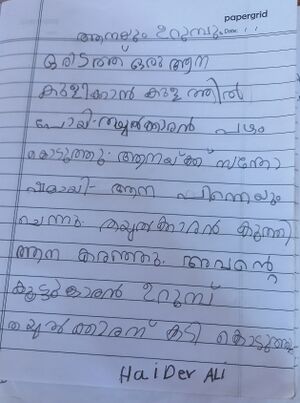 papergrid
Date: / /
ആനയും ഉറുമ്പും
ഒരിടത്ത് ഒരു ആന
കുളിക്കാൻ കുളത്തിൽ
പോയി. തയ്യൽക്കാരൻ പഴം
കൊടുത്തു. ആനയ്ക്ക് സന്തോ
ഷമായി. ആന പിന്നെയും
ചെന്നു. തയ്യൽക്കാരൻ കുത്തി
ആന കരഞ്ഞു. അവൻ്റെ
കൂട്ടുകാരൻ ഉറുമ്പ്
തയ്യൽക്കാരന് കടി കൊടുത്തു.
HaiDer ALi